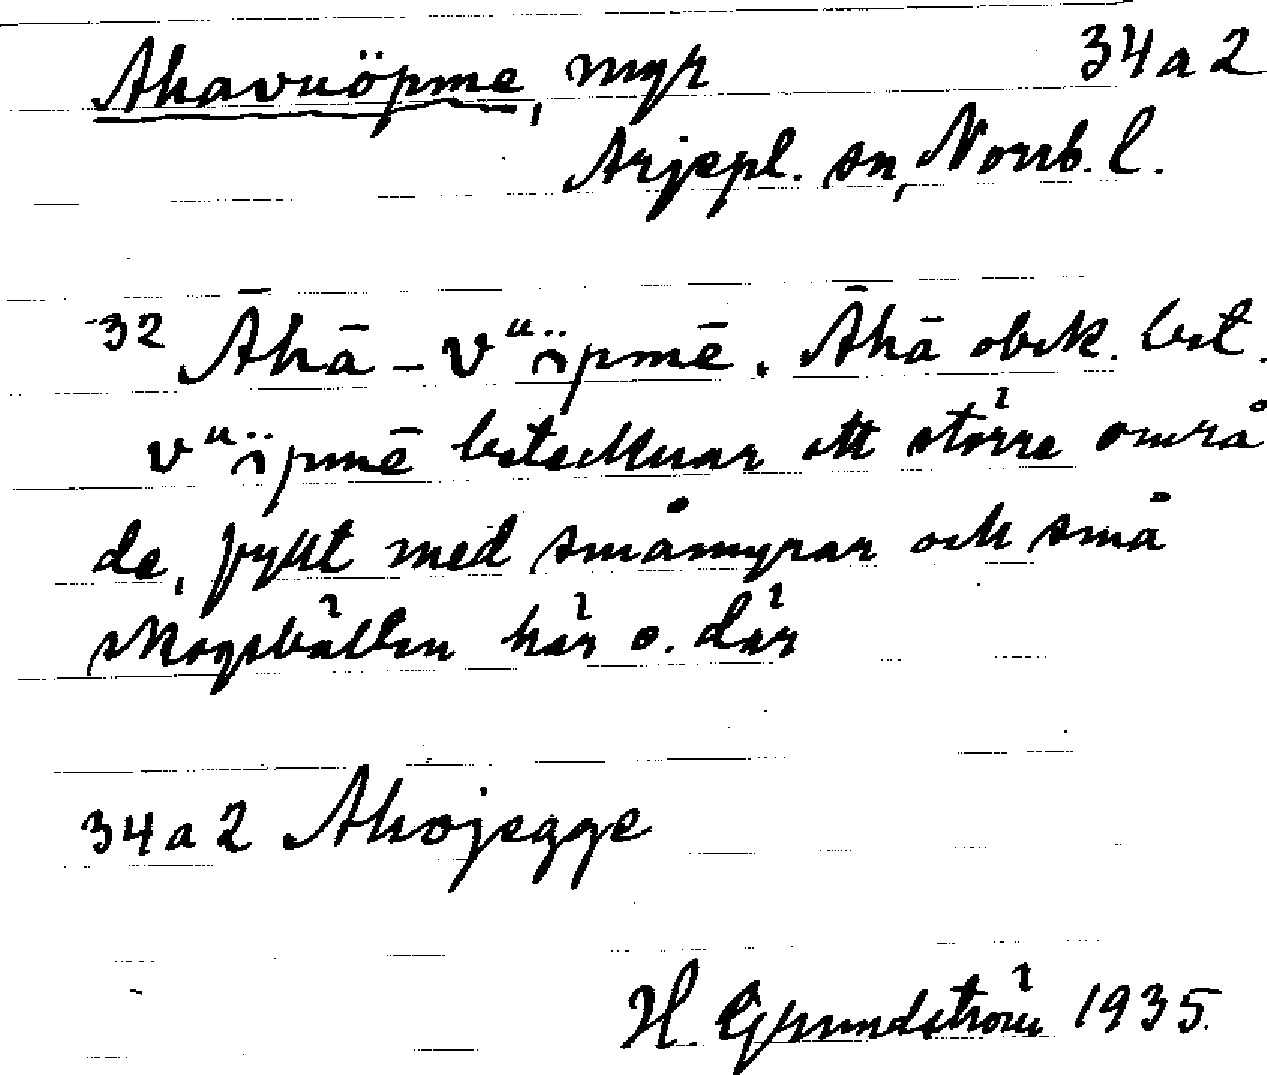 Ahavuöpme, myr 34 a 2
Arjepl. sn, Norrb. l.
32 Āhā - vᵘöpmē. Āhā obek. bet.
vᵘöpmē betecknar ett större områ
de, fyllt med småmyrar och små
skogsbälten här o. där
34 a 2 Ahojegge
H. Grundström 1935.